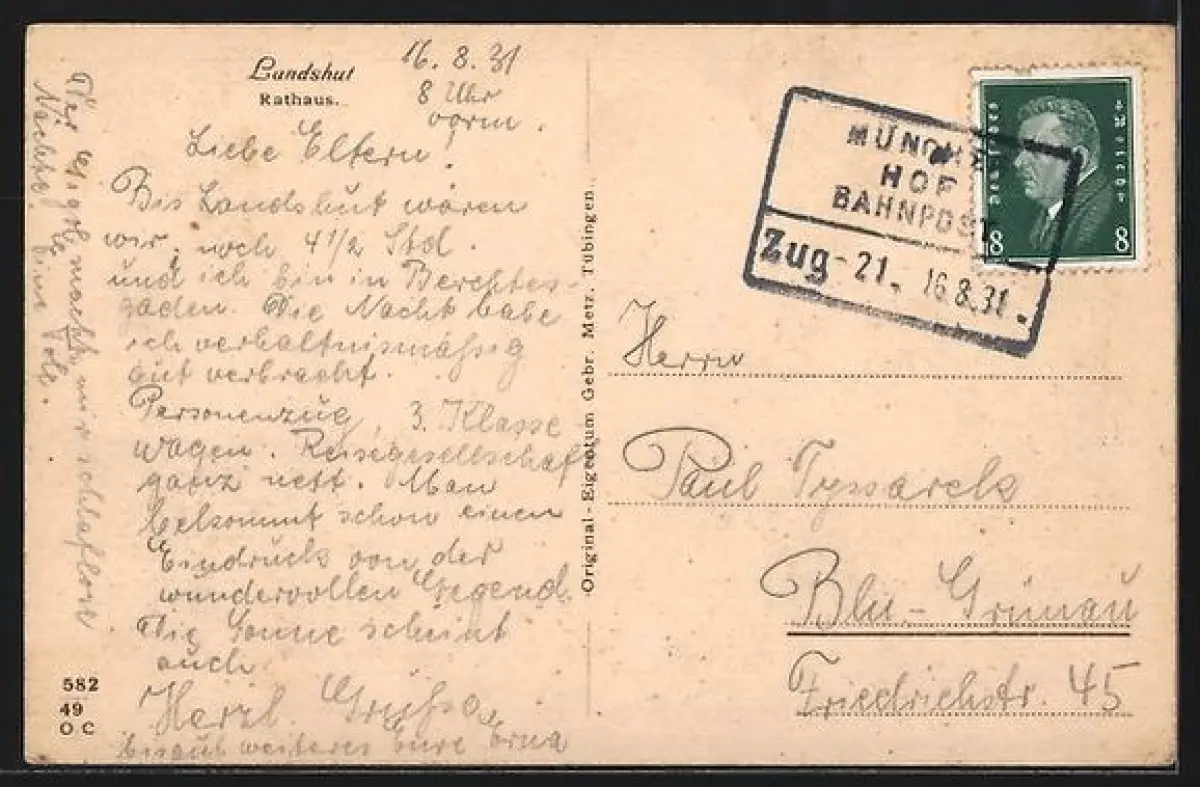 Landshut
Rathaus.
16.8.31
8 Uhr
vorm.
Liebe Eltern!
Bis Landshut wären
wir, noch 4 1/2 Std.
und ich bin in Berchtes-
gaden. Die Nacht habe
ich verhältnismässig
gut verbracht.
Personenzug, 3. Klasse
wagen. Reisegesellschaft
ganz nett. Man
bekommt schon einen
Eindruck von der
wundervollen Gegend.
Die Sonne scheint
auch
Herzl. Grüsse
bis auf weiteres Eure Erna
macht mir schlaflose
Nächte.
582
49
O C
Original - Eigentum Gebr. Metz, Tübingen
MÜNCHE
HOF
BAHNPOST
Zug - 21. 16.8.31.
8 8
Herrn
Paul Tyssarck
Bln - Grünau
Friedrichstr. 45